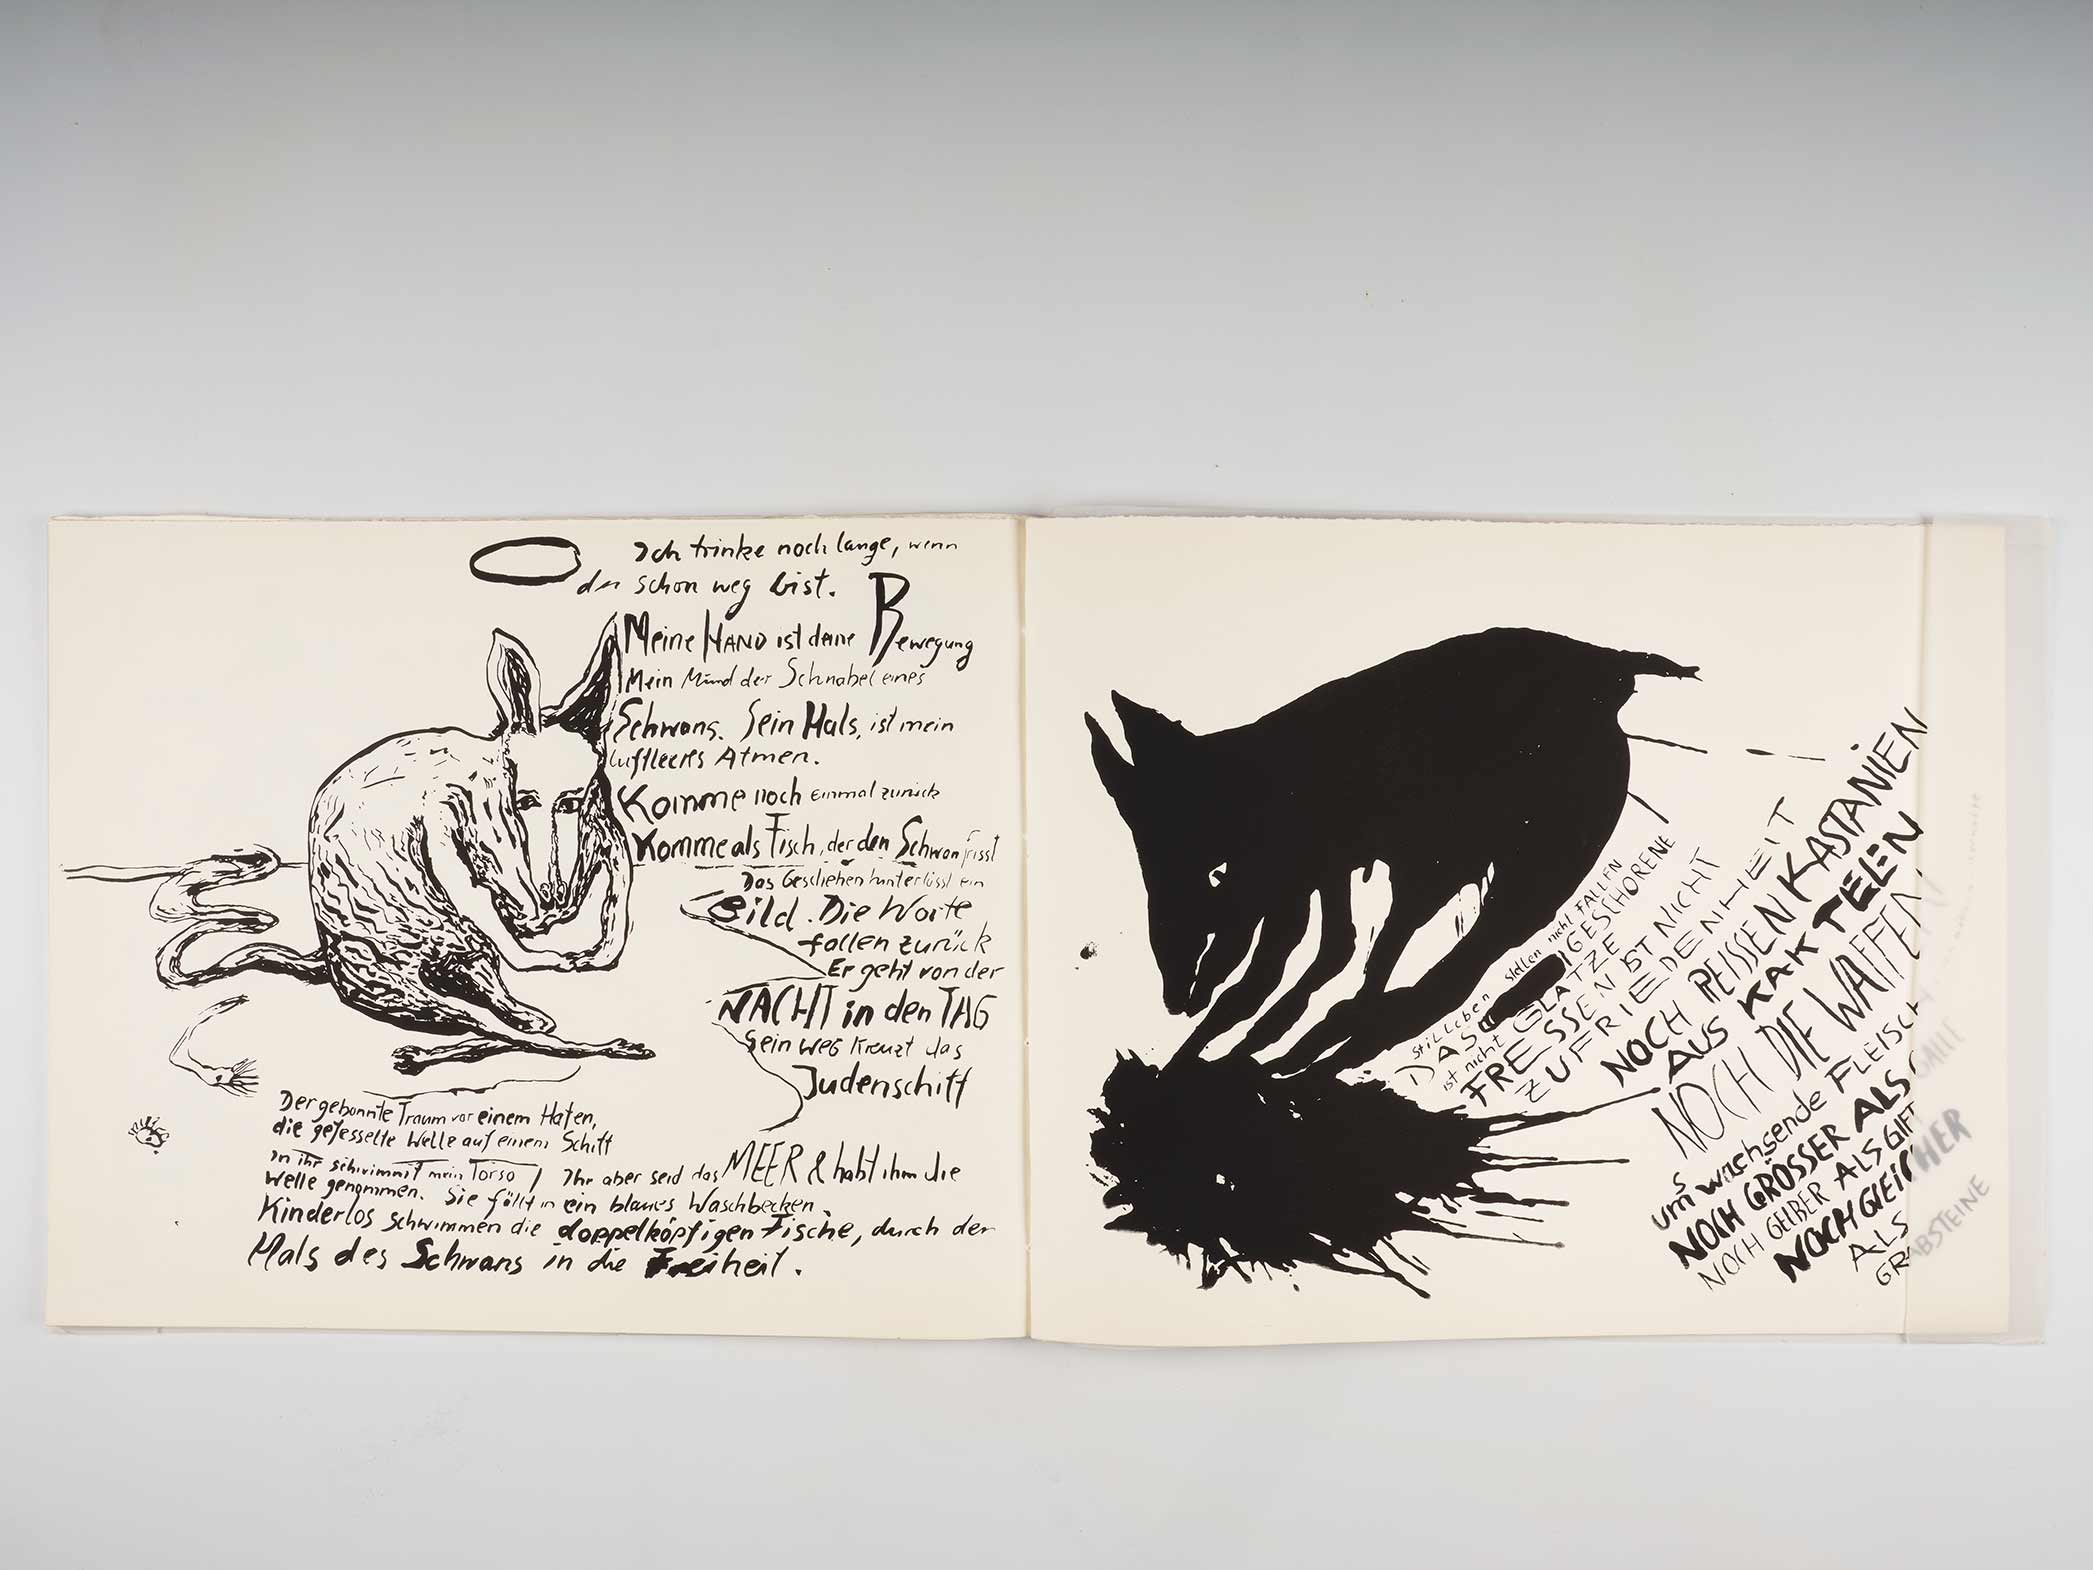 Ich trinke noch lange, wenn
du schon weg bist.
Meine HAND ist deine Bewegung
Mein Mund der Schnabel eines
Schwans. Sein Hals, ist mein
luftleeres Atmen.
Komme noch einmal zurück
Komme als Fisch, der den Schwan frisst
Das Geschehen hinterlässt ein
Bild. Die Worte
fallen zurück
Er geht von der
NACHT in den TAG
Sein WEG Kreuzt das
Judenschiff
Der gebannte Traum vor einem Hafen,
die gefesselte Welle auf einem Schiff
In ihr schwimmt mein Torso / Ihr aber seid das MEER & habt ihm die
Welle genommen. Sie fällt in ein blaues Waschbecken.
Kinderlos schwimmen die doppelköpfigen Fische, durch der
Hals des Schwans in die Freiheit.
Stilleben stellen nicht FALLEN
DAS IGESCHORENE
ist nicht GLATZE
FRESSEN IST NICHT
ZUFRIEDENHEIT
NOCH REISSEN KASTANIEN
AUS KAKTEEN
NOCH DIE WAFFEN
UMS wachsende FLEISCH
NOCH GRÖSSER ALS GALLE
NOCH GELBER ALS GIFT
NOCH GLEICHER
ALS
GRABSTEINE